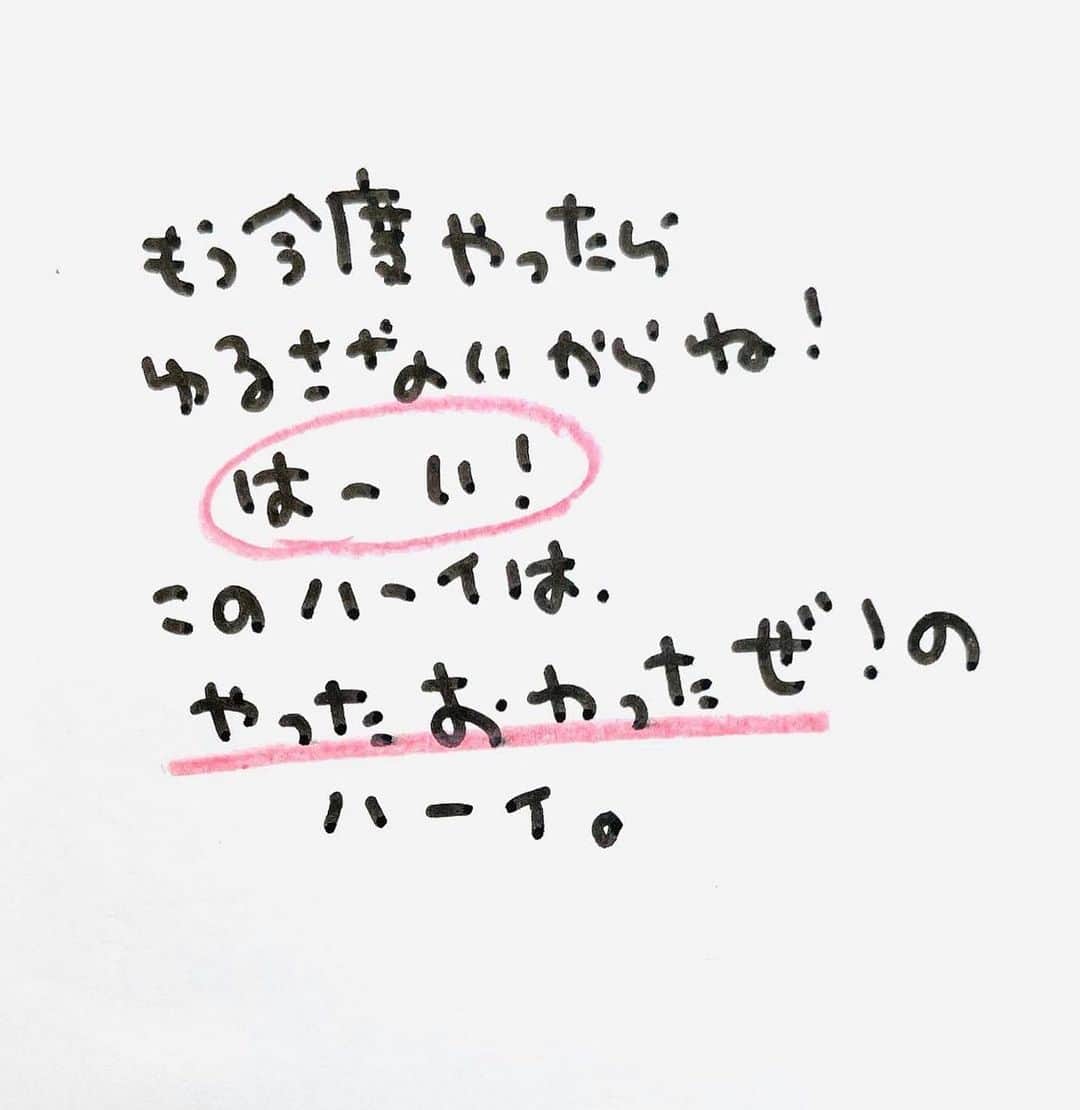 もう今度やったら
ゆるさないからね！
はーい！
このハーイは、
やったお・やったぜ！の
ハーイ。